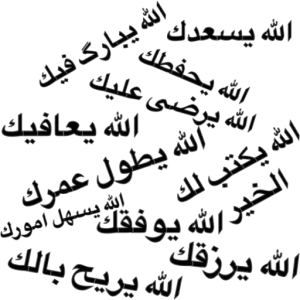 الله يسعدك
الله يبارگ فيك
الله يحفظك
الله يرضى عليك
الله يعافيك
الله يطول عمرك
الله يكتب لك
الخير
الله يسهل امورك
الله يوفقك
الله يرزقك
الله يريح بالك